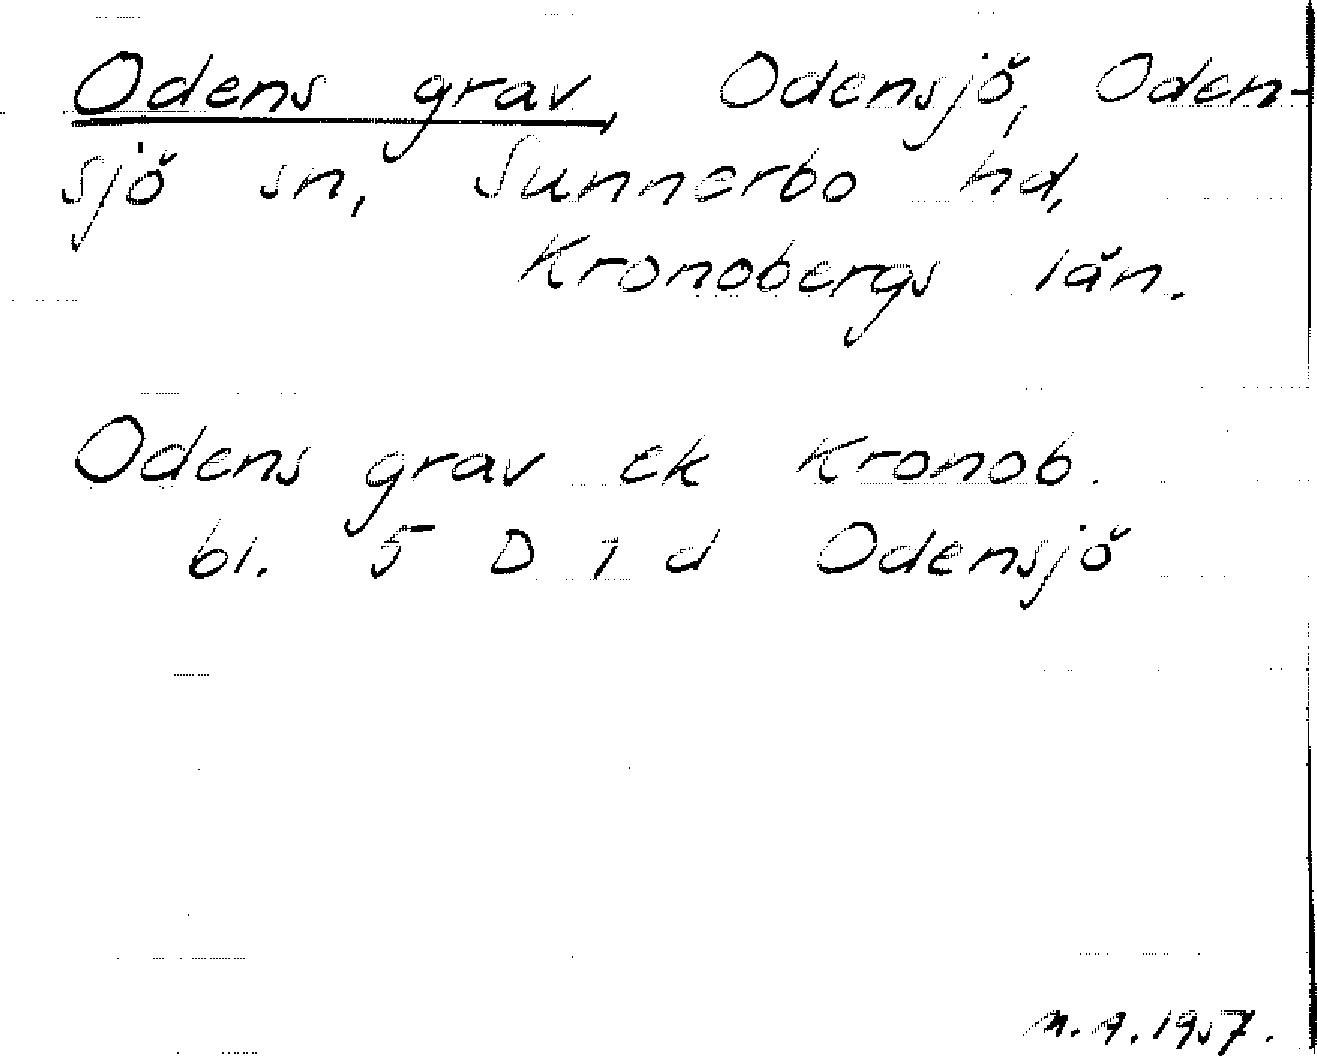 Odens grav, Odensjö, Oden-
sjö sn, Sunnerbo hd,
Kronobergs län.
Odens grav ek Kronob.
bl. 5 D 1 d Odensjö
M.A. 1957.